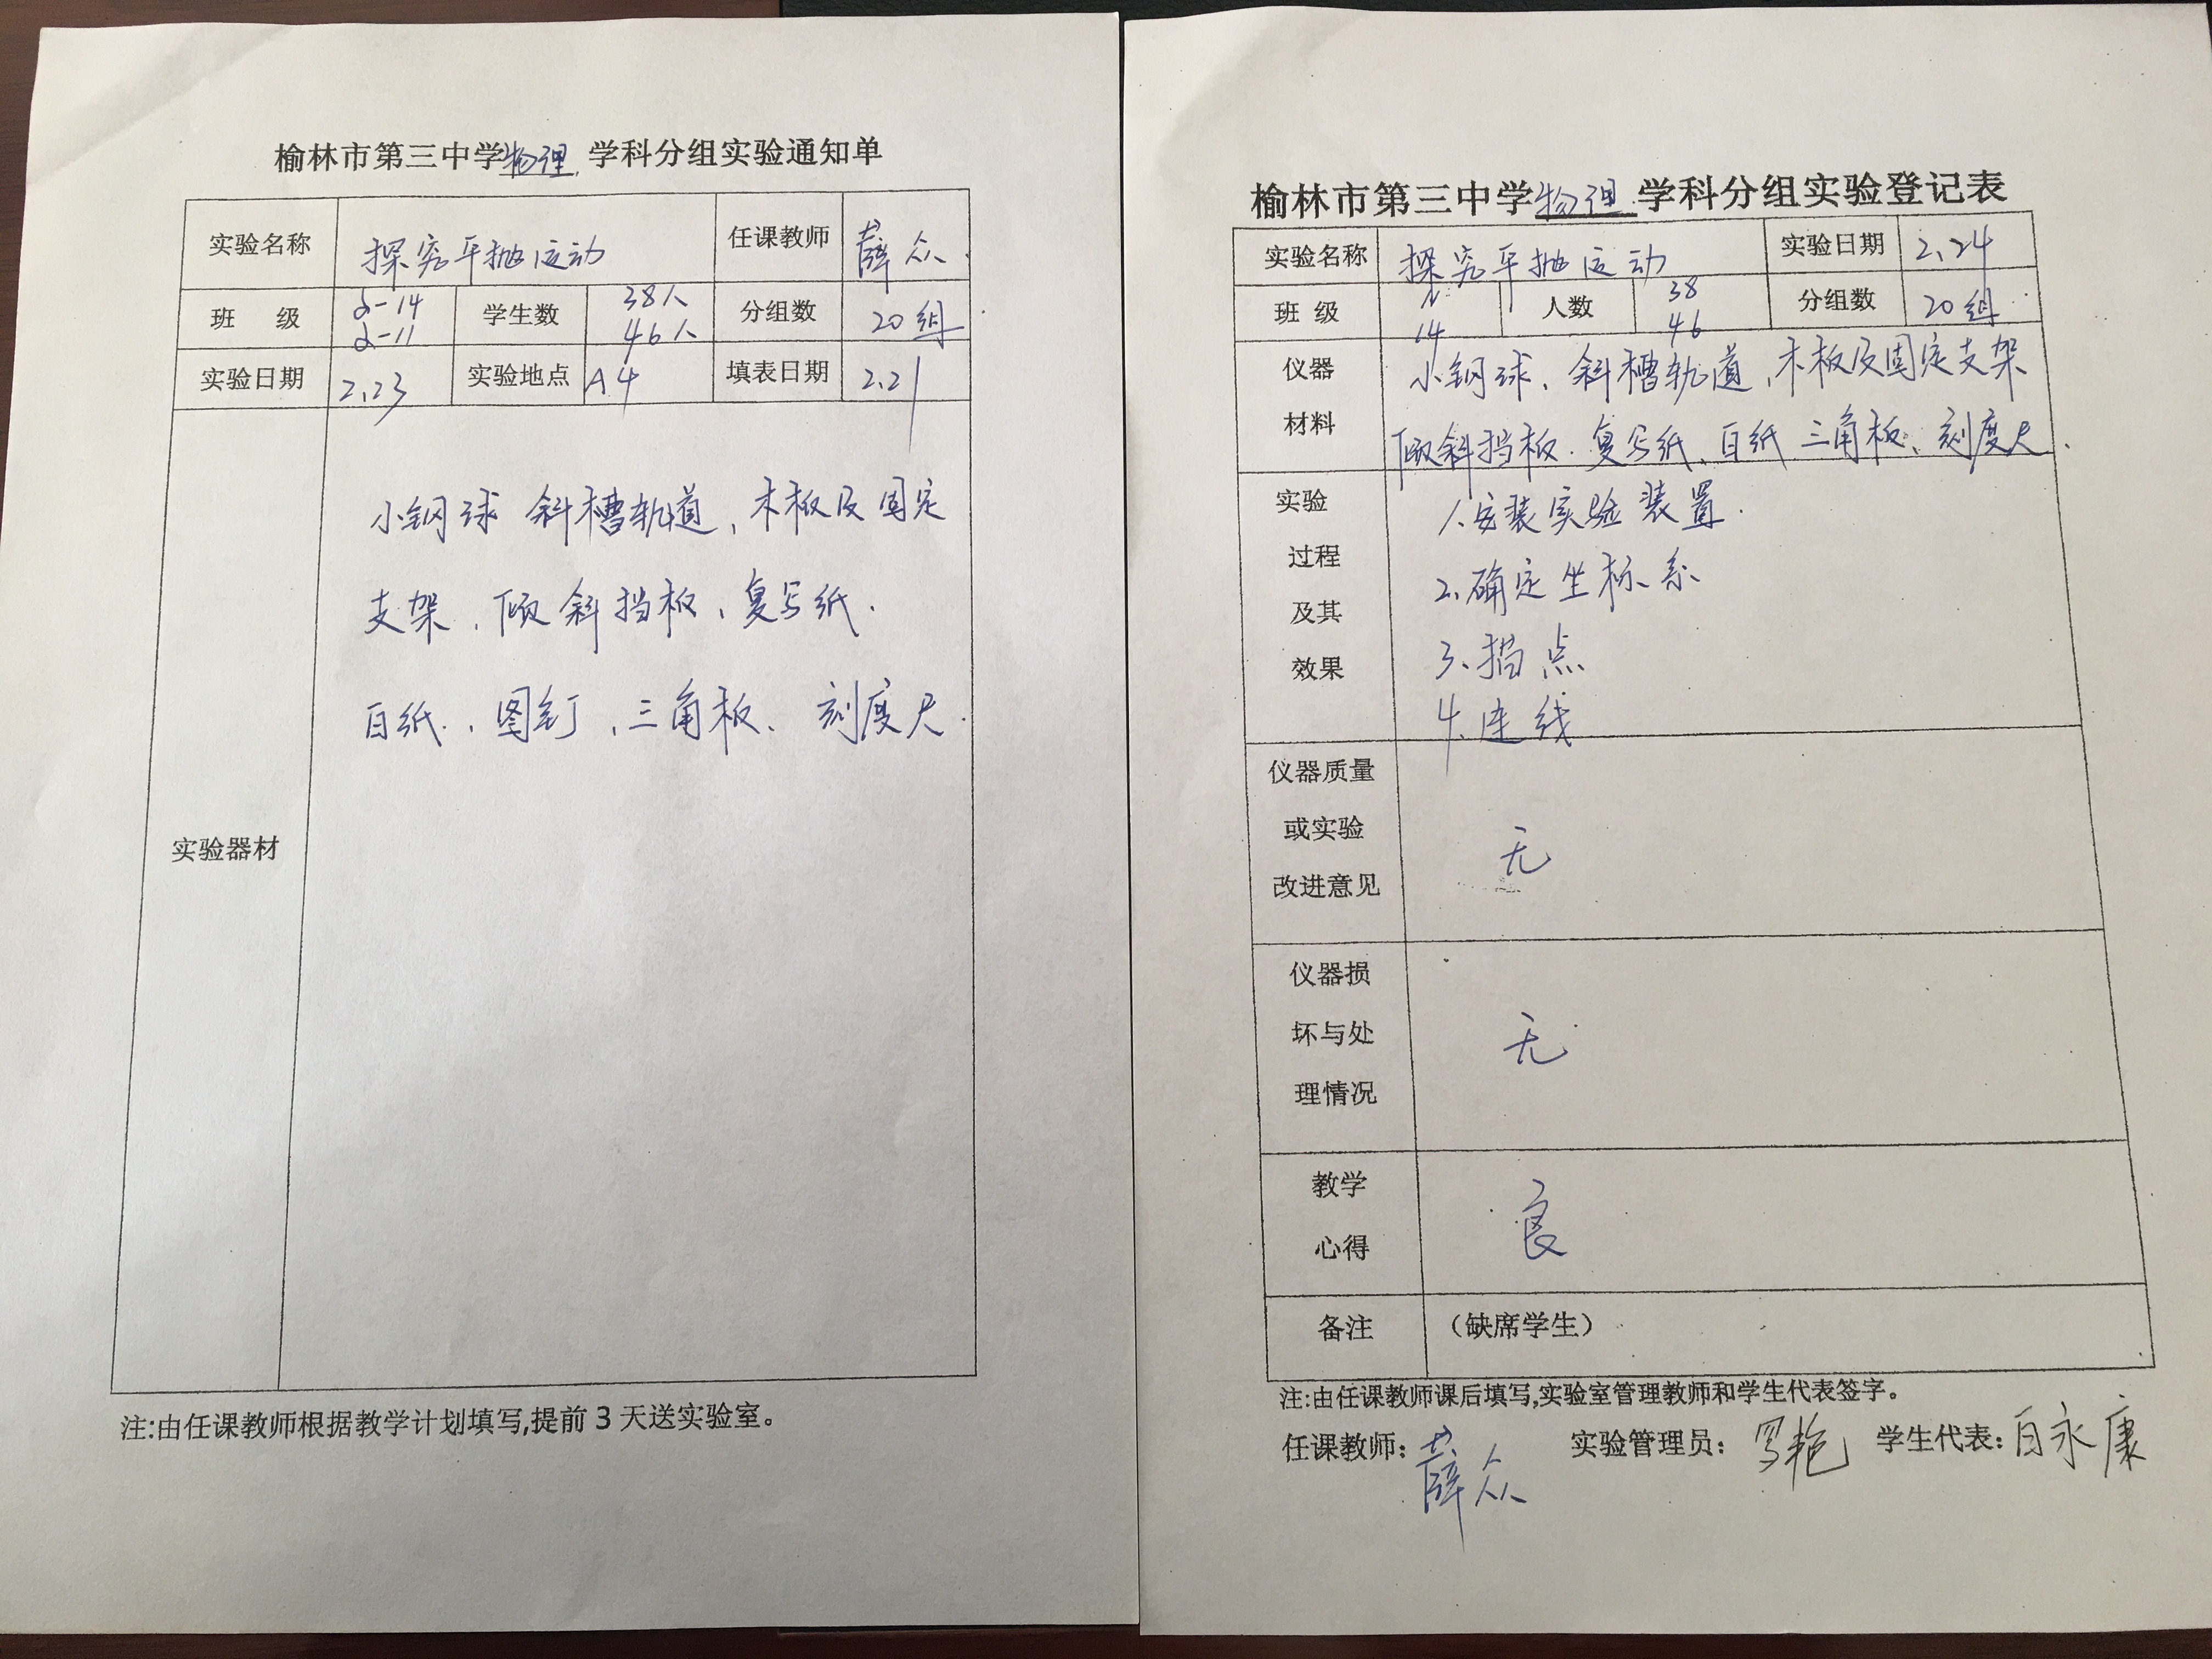 榆林市第三中学物理 学科分组实验通知单
实验名称 探究平抛运动 任课教师 薛众
班 级 2-14 2-11 学生数 38人 46人 分组数 20组
实验日期 2.23 实验地点 A4 填表日期 2.21
实验器材
小钢球 斜槽轨道、木板及固定
支架、倾斜挡板、复写纸.
白纸、图钉、三角板、刻度尺.
注:由任课教师根据教学计划填写,提前3天送实验室。
榆林市第三中学物理 学科分组实验登记表
实验名称 探究平抛运动 实验日期 2.24
班 级 14 人数 38 46 分组数 20组
仪器 材料
小钢球、斜槽轨道、木板及固定支架
倾斜挡板.复写纸、白纸 三角板、刻度尺.
实验 过程 及其 效果
1.安装实验装置.
2.确定坐标系
3.描点
4.连线
仪器质量 或实验 改进意见 无
仪器损 坏与处 理情况 无
教学 心得 良
备注 （缺席学生）
注:由任课教师课后填写,实验室管理教师和学生代表签字。
任课教师：薛众 实验管理员： 艳 学生代表：白永康